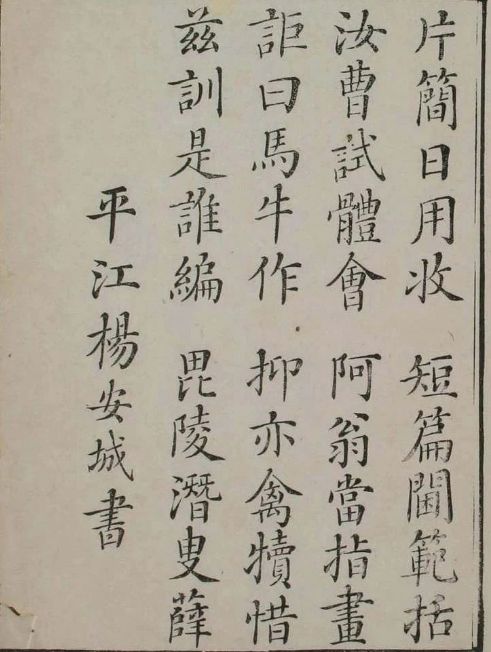 片簡日用收 短篇閫範括
汝曹試體會 阿翁當指畫
詎曰馬牛作 抑亦禽犢惜
兹訓是誰編 毘陵潛叟薛
平江楊安城書